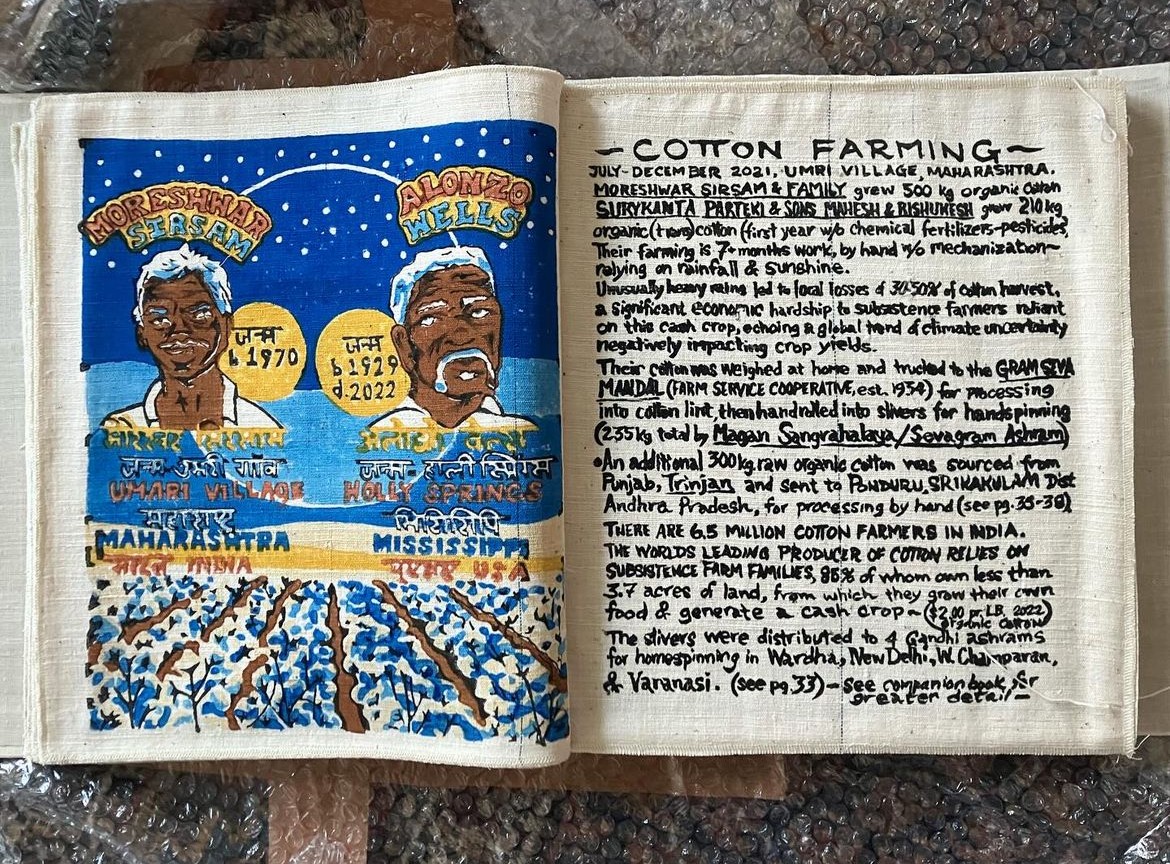 MORESHWAR
SIRSAM
जन्म
b 1970
मोरेश्वर सिरसाम
जन्म-उमरी गाँव
UMARI VILLAGE
महाराष्ट्र
MAHARASHTRA
भारत INDIA
ALONZO
WELLS
जन्म
b 1929
d. 2022
अलोंज़ो वेल्स
जन्म-हाली स्प्रिंग्स
HOLLY SPRINGS
मिसिसिपि
MISSISSIPPI
यूएसए USA
~COTTON FARMING~
JULY-DECEMBER 2021, UMRI VILLAGE, MAHARASHTRA.
MORESHWAR SIRSAM & FAMILY grew 500 kg organic cotton
SURYKANTA PARTEKI & SONS MAHESH & RISHUKESH grew 210 kg
organic (trans) cotton (first year w/o chemical fertilizers-pesticides)
Their farming is 7+ months work, by hand w/o mechanization~
relying on rainfall & sunshine.
Unusually heavy rains led to local losses of 30-50% of cotton harvest,
a significant economic hardship to subsistence farmers reliant
on this cash crop, echoing a global trend of climate uncertainty
negatively impacting crop yields.
Their cotton was weighed at home and trucked to the GRAM SEVA
MANDAL (FARM SERVICE COOPERATIVE, est. 1934) for processing
into cotton lint, then handrolled into slivers for handspinning
(235 kg total by Magan Sangrahalaya/Sevagram Ashram)
•An additional 300 kg raw organic cotton was sourced from
Punjab, Trinjan and sent to PONDURU, SRIKAKULAM Dist
Andhra Pradesh, for processing by hand (see pg. 35-38)
THERE ARE 6.5 MILLION COTTON FARMERS IN INDIA.
THE WORLDS LEADING PRODUCER OF COTTON RELIES ON
SUBSISTENCE FARM FAMILIES, 85% of whom own less than
3.7 acres of land, from which they grow their own
food & generate a cash crop~ ($2.00 pr. LB, 2022)
organic cotton
The slivers were distributed to 4 Gandhi ashrams
for homespinning in Wardha, New Delhi, W. Champaran,
& Varanasi. (see pg. 33)~ see companion book for
greater detail~